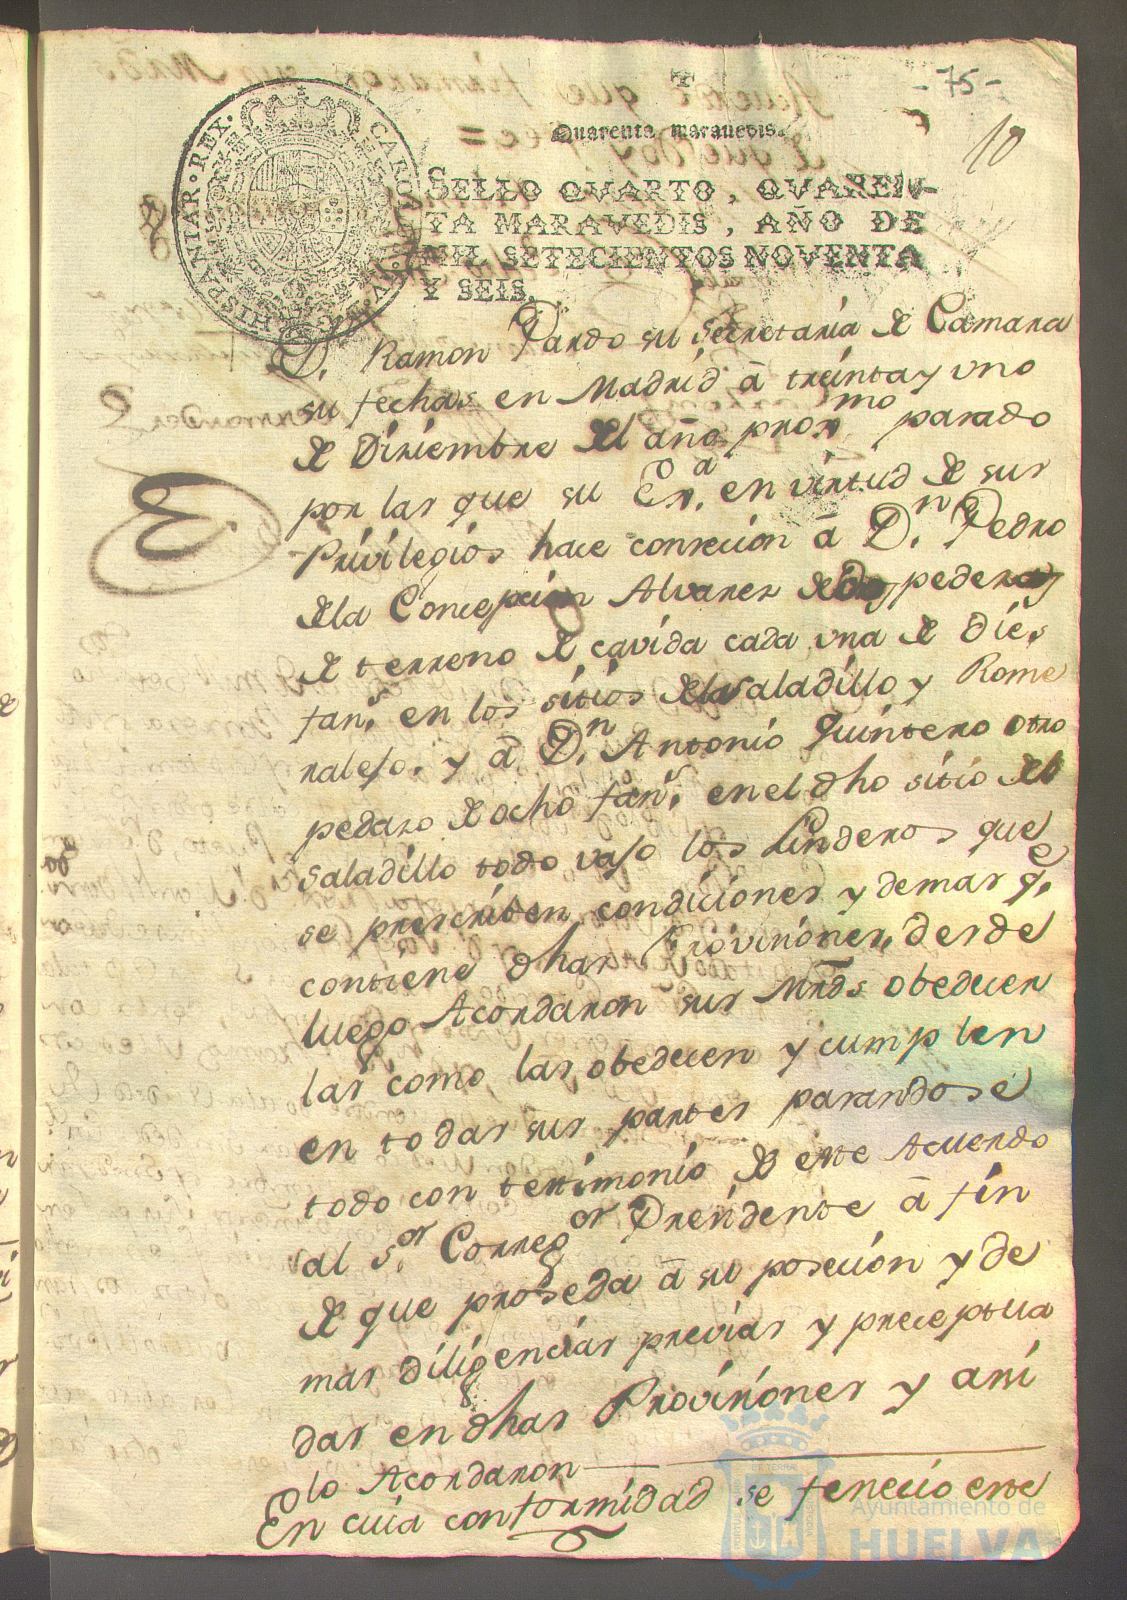 -75-
10
Quarenta maravedis.
SELLO QVARTO, QVAREN-
TA MARAVEDIS, AÑO DE
MIL SETECIENTOS NOVENTA
Y SEIS.
HISPANIAR·REX·
D. Ramon Pardo su Secretaria de Camara
su fechas en Madrid â treinta y uno
de Diziembre del año proxmo pasado
por las que su Exa. en virtud de sus
Privilegios hace consecion â Dn. Pedro
dela Concepcion Alvarez de pedazos
de terreno de cavida cada una de Dies
fans. en los sitios dela Saladillo y Rome
ralejo, y â Dn. Antonio Quintero otro
pedazo de ocho fans. en el dho sitio del
Saladillo todo vajo los Linderos que
se prescriben condiciones y demas qe.
contiene dhas Provisiones, desde
luego Acordaron sus Mrds obedecer
las como las obedecen y cumplen
en todas sus partes pasandose
todo con testimonio de este Acuerdo
al Sor. Corregor Presidente â fin
de que proseda â su posecion y de
mas diligencias previas y preceptua
das en dhas Provisiones y assi
lo Acordaron
En cuia conformidad se fenecio este
Ayuntamiento de
HUELVA